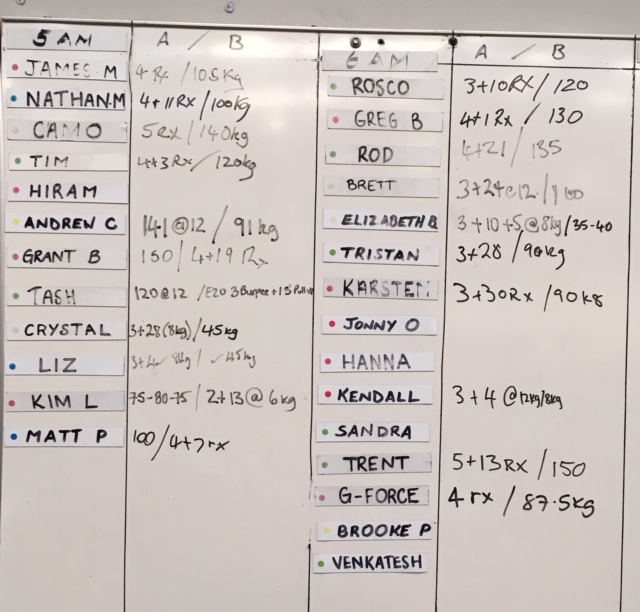 5 AM A / B
JAMES M 4 Rx / 105kg
NATHAN.M 4+11Rx/100kg
CAMO 5Rx / 140kg
TIM 4+3Rx / 120kg
HIRAM
ANDREW C 141@12 / 91kg
GRANT B 150 / 4+19 Rx
TASH 120@12 / E20 3Burpee+15
CRYSTAL 3+28(8kg)/45kg
LIZ 8kg / 45kg
KIM L 75-80-75 / 2+13@6kg
MATT P 100/4+7rx
6 AM A / B
ROSCO 3+10RX/120
GREG B 4+1Rx / 130
ROD 4+21 / 135
BRETT 3+24@12 / 100
ELIZABETH B 3+10+5@8kg/35-40
TRISTAN 3+28 /90kg
KARSTEN 3+30Rx /90kg
JONNY O
HANNA
KENDALL 3+4@12kg/8kg
SANDRA
TRENT 5+13RX/150
G-FORCE 4rx / 87.5kg
BROOKE P
VENKATESH